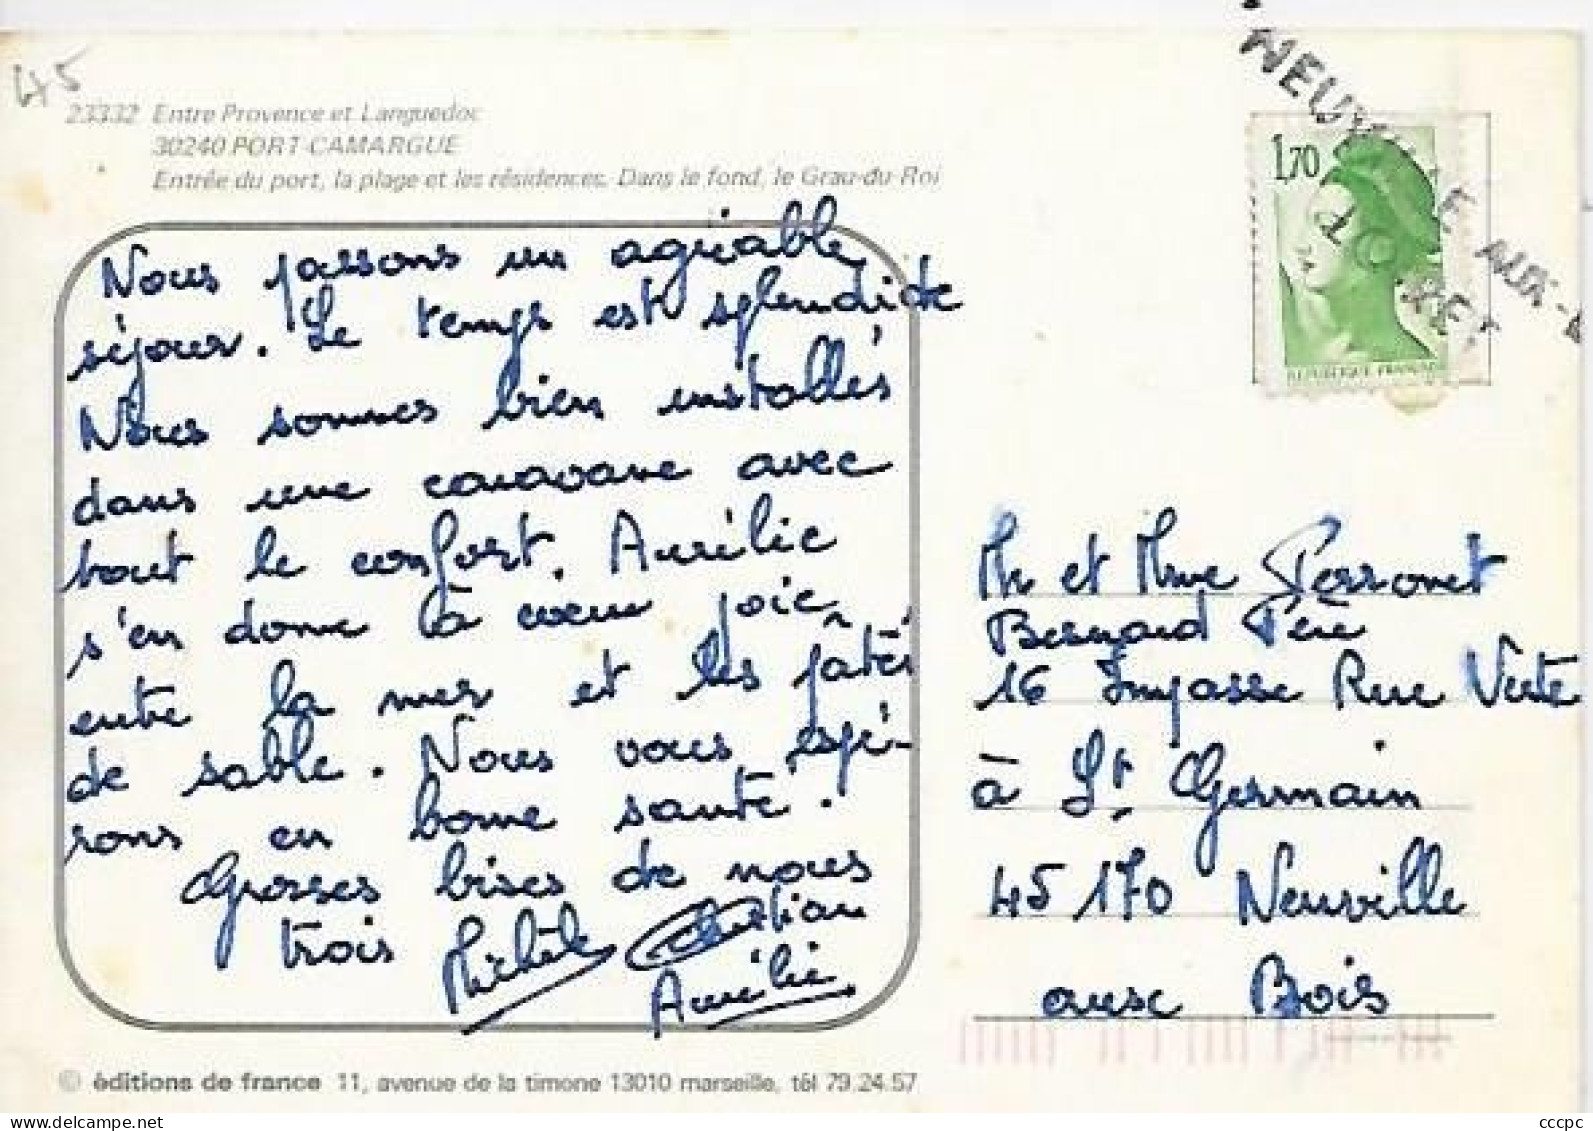 45
23332 Entre Provence et Languedoc
30240 PORT CAMARGUE
Entrée du port, la plage et les résidences. Dans le fond, le Grau-du-Roi
Nous passons un agréable
séjour. Le temps est splendide
Nous sommes bien installés
dans une caravane avec
tout le confort. Aurélie
s'en donne à coeur joie
entre la mer et les pâtés
de sable. Nous vous espé-
rons en bonne santé.
Grosses bises de nous
trois Michèle Christian
Aurélie
1,70
REPUBLIQUE FRANCAISE
NEUVILLE AUX-
Mr et Mme Perronet
Bernard Père
16 Impasse Rue Verte
à St Germain
45170 Neuville
aux Bois
© éditions de france 11, avenue de la timone 13010 marseille, tél 79.24.57
cccpc